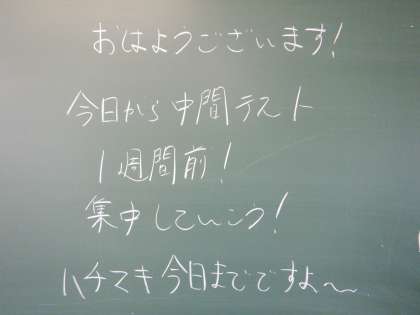 おはようございます!
今日から中間テスト
1週間前!
集中していこう!
ハチマキ今日までですよ〜